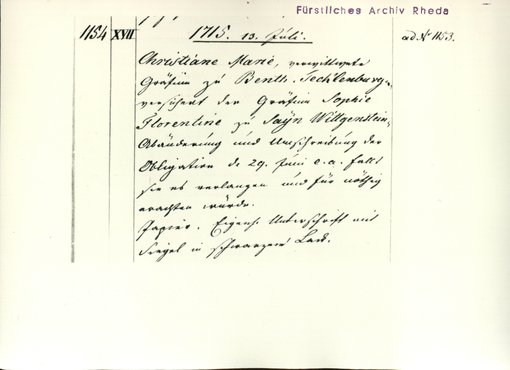 Fürstliches Archiv Rheda
1154 XVII 1715. 13. Juli. ad. № 1153.
Christiane Marie, verwittwete
Gräfinn zu Benth. Tecklenburg,
versichert der Gräfinn Sophie
Florentine zu Saÿn Wittgenstein,
Abänderung und Umschreibung der
Obligation de 29. Juni e. a. falls
sie es verlangen und für nöthig
erachten würde.
Papier. Eigenh. Unterschrift mit
Siegel in schwarzem Lack.